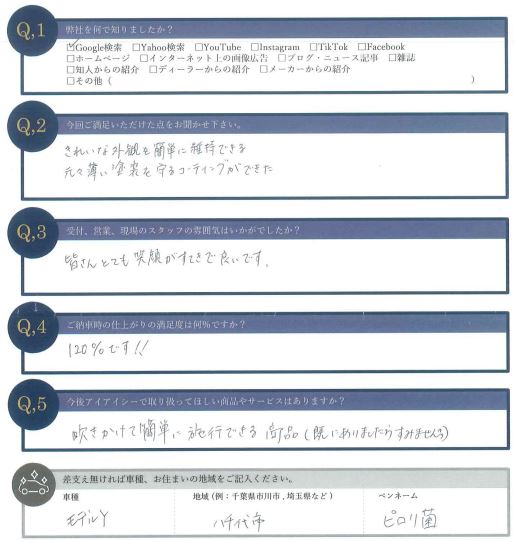 Q,1 弊社を何で知りましたか？
☑Google検索 □Yahoo検索 □YouTube □Instagram □TikTok □Facebook
□ホームページ □インターネット上の画像広告 □ブログ・ニュース記事 □雑誌
□知人からの紹介 □ディーラーからの紹介 □メーカーからの紹介
□その他（ ）
Q,2 今回ご満足いただけた点をお聞かせ下さい。
きれいな外観を簡単に維持できる
元々薄い塗装を守るコーティングができた
Q,3 受付、営業、現場のスタッフの雰囲気はいかがでしたか？
皆さんとても笑顔がすてきで良いです。
Q,4 ご納車時の仕上がりの満足度は何%ですか？
120%です!!
Q,5 今後アイアイシーで取り扱ってほしい商品やサービスはありますか？
吹きかけて簡単に施行できる商品(既にありましたらすみません)
差支え無ければ車種、お住まいの地域をご記入ください。
車種 地域（例：千葉県市川市，埼玉県など） ペンネーム
モデルY 八千代市 ピロリ菌